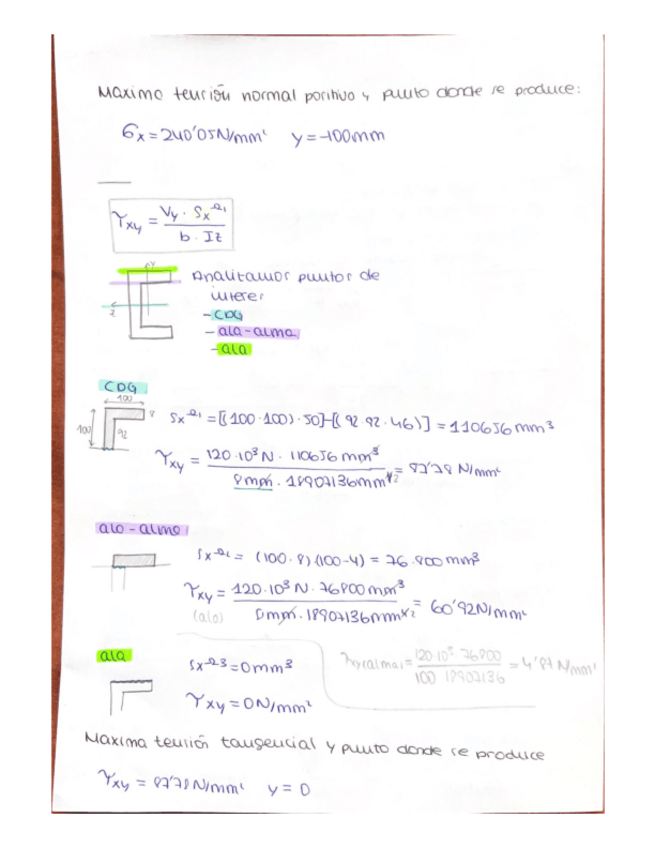 Maximo tensión normal positivo y punto donde se produce:
σx = 240'05 N/mm² y = -100mm
τxy = Vy · Sx^Ω1 / b · Iz
y
z
Analizamos puntos de
interes
- CDG
- ala-alma
- ala
CDG
100
100
8
92
Sx^Ω1 = [(100·100)·50]-[(92·92·46)] = 110656 mm³
τxy = 120·10³ N · 110656 mm³ / 8mm · 18907136mm⁴ = 87'78 N/mm²
ala - alma
Sx^Ω1 = (100·8)·(100-4) = 76.800 mm³
τxy = 120·10³ N · 76800 mm³ / 8mm · 18907136mm⁴ = 60'92 N/mm²
(ala)
τxy(alma) = 120·10³ · 76800 / 100 18907136 = 4'87 N/mm²
ala
Sx^Ω3 = 0mm³
τxy = 0 N/mm²
Maxima tensión tangencial y punto donde se produce
τxy = 87'78 N/mm² y = 0